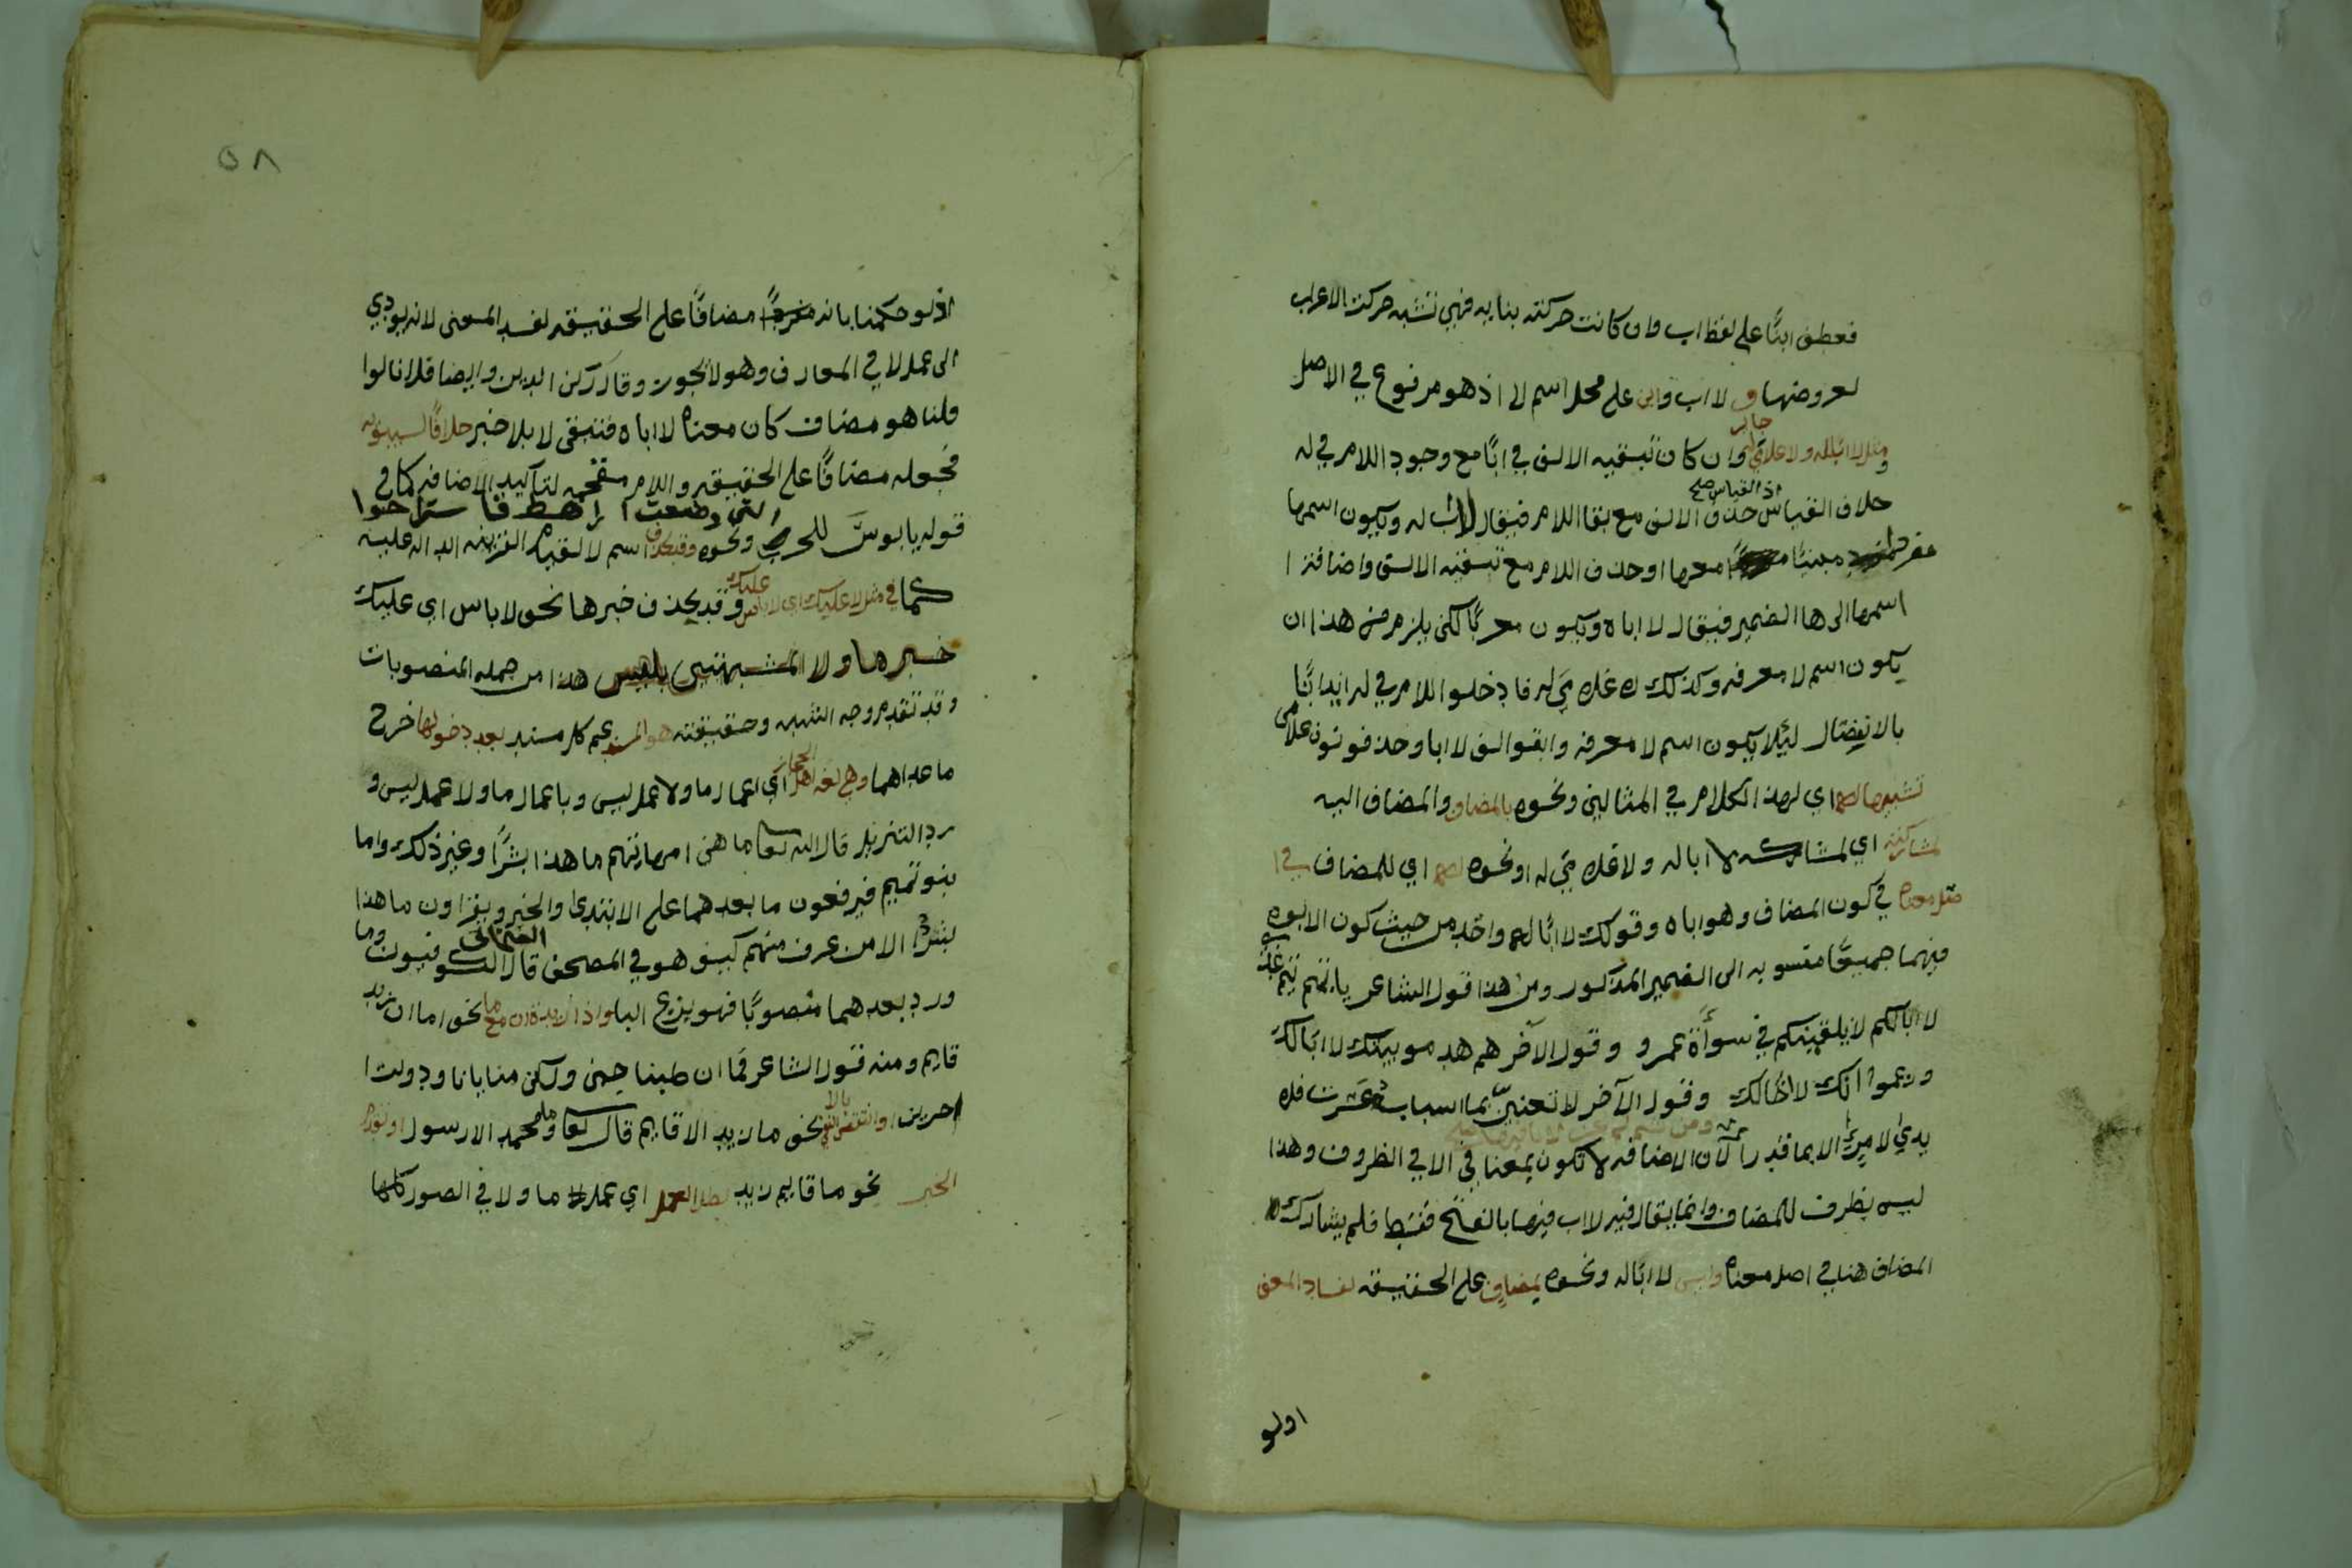 فعطف ابنًا على لفظ اب وان كانت حركته بنايه فهي تشبه حركت الاعراب
لعروضها و لا اب وابن على محل اسم لا اذ هو مرفوع في الاصل
جائز
ومثل لا ابا له ولا غلامي له وان كان تبقيه الالف في ابًا مع وجود اللام في له
اذ القياس صح
خلاف القياس حذف الالف مع بقا اللام فيقال لا اب له ويكون اسمها
مفردا مبنيًا معها او حذف اللام مع تبقيه الالف واضافة
اسمها الى ها الضمير فيقال لا اباه ويكون معربًا لكن يلزم من هذا ان
يكون اسم لا معرفه وكذلك لا غلاميَ له فادخلوا اللام في له ايذانًا
بالانفصال ليلا يكون اسم لا معرفه وابقوا الف لا ابا وحذفو نون غلامى
تشبيها له اي لهذا الكلام في المثالين ونحوه بالمضاف والمضاف اليه
لمشاركته اي لمشاركة لا ابا له ولا غلامي له او نحوه له اي للمضاف في ا
صل معناه في كون المضاف وهو اباه وقولك لا ابًا له واحد من حيث كون الابوه
فيهما جميعًا منسوبه الى الضمير المذكور ومن هذا قول الشاعر يا تيم تيم عدي
لا ابًا لكم لا يلقينكم في سوأةً عمرو وقول الآخر هم هدمو بيتك لا ابًا لك
وزعموا انك لا اخًا لك وقول الآخر لا تعنينّ بما اسبابه عسرت فلا
ومن ثم لم يجز لا ابا فيها
يدي لامرئٍ الا بما قدرا لان الاضافه لا تكون بمعنا في الا في الظروف وهذا
ليس بظرف للمضاف وانما يقال فيه لا اب فيها بالفتح فقط فلم يشارك
المضاف هنا في اصل معناه وليس لا ابًا له ونحوه بمضاف على الحقيقه لفساد المعنى
اولو
٥٨
اذ لو حكمنا بانه مضافًا على الحقيقه لفسد المعنى لانه يودي
الى عمل لا في المعارف وهو لا يجوز وقال ركن الدين وايضا فلانا لوا
قلنا هو مضاف كان معناه لا اباه فتبقى لا بلا خبر خلافًا لسيبويه
فجعله مضافًا على الحقيقه واللام مقحمه لتاكيد الاضافه كما في
التي وضعت اراهط فاستراحوا
قوله يا بوسَ للحرب ونحوه وقد يحذف اسم لا لقيام القرينه الداله عليه
كما في مثل لا عليك اي لا باس عليك وقد يحذف خبرها نحو لا باس اي عليك
خبر ما ولا المشبهتين بليس هذا من جمله المنصوبات
وقد تقدم وجه الشبه وحقيقته هو المسند عم كل مسند بعد دخولها خرج
ما عداهما وهي لغه اهل الحجاز اي اعمال ما ولا عمل ليس وباعمال ما ولا عمل ليس و
رد التنزيل قال الله تعا ما هن امهاتهم ما هذا بشرًا وغير ذلك واما
بنو تميم فيرفعون ما بعدهما على الابتدى والخبر ويقراون ما هذا
بشرٌ الا من عرف منهم كيف هو في المصحف قال الكوفيون وما
ورد بعدهما منصوبًا فهو بنزع البا واذا زيدت ان مع ما نحو ما ان زيد
قايم ومنه قول الشاعر فما ان طبنا جبن ولكن منايانا ودولت ا
اخرين او انتقض النفي بالا نحو ما زيد الا قايم قال تعا وما محمد الا رسول او تقدم
الخبر نحو ما قايم زيد بطل العمل اي عمل ما ولا في الصور كلها